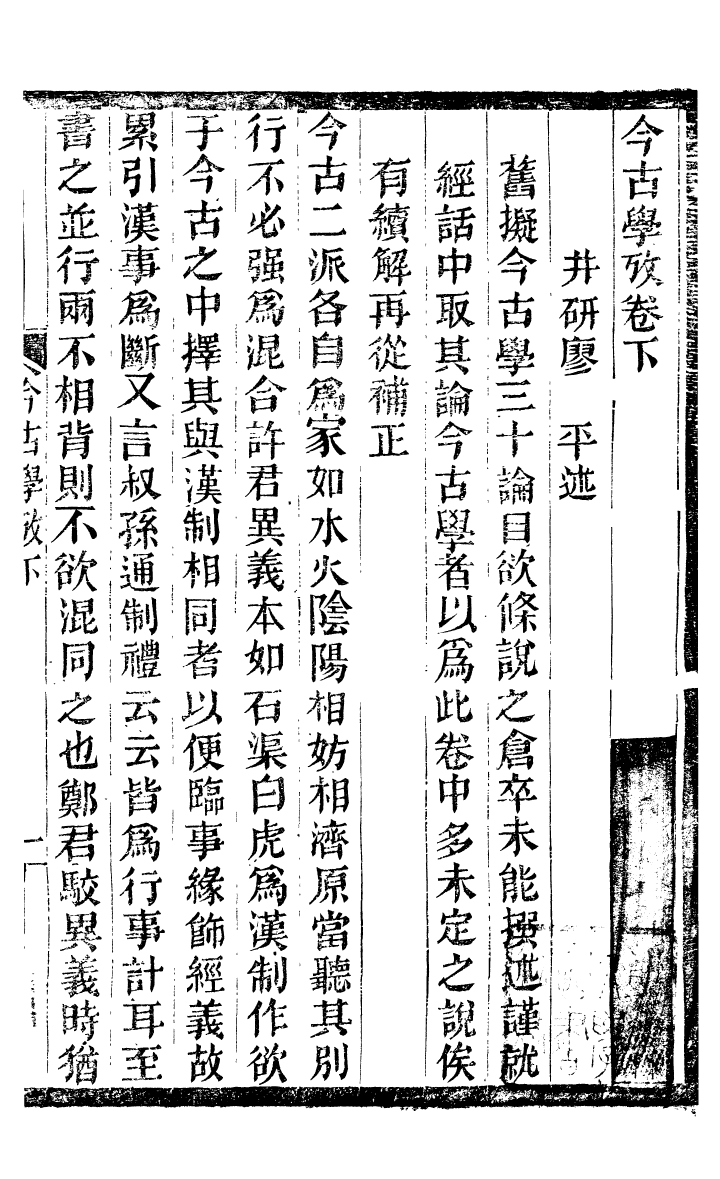 今古學攷卷下
井研廖 平述
舊擬今古學三十論目欲條說之倉卒未能撰述謹就
經話中取其論今古學者以爲此卷中多未定之說俟
有續解再從補正
今古二派各自爲家如水火陰陽相妨相濟原當聽其別
行不必强爲混合許君異義本如石渠白虎爲漢制作欲
于今古之中擇其與漢制相同者以便臨事緣飾經義故
累引漢事爲斷又言叔孫通制禮云云皆爲行事計耳至
書之並行兩不相背則不欲混同之也鄭君駮異義時猶
今古學攷下
一